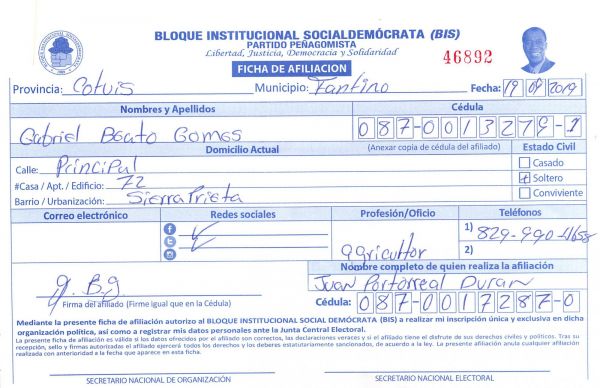 BLOQUE INSTITUCIONAL SOCIALDEMÓCRATA (BIS)
PARTIDO PEÑAGOMISTA
Libertad, Justicia, Democracia y Solidaridad
46892
FICHA DE AFILIACION
Provincia: Cotuis Municipio: Fantino Fecha: 19 09 2019
Nombres y Apellidos Cédula
Gabriel Beato Gomes 087-0013279-1
Domicilio Actual (Anexar copia de cédula del afiliado) Estado Civil
Calle: Principal Casado
#Casa / Apt. / Edificio: 72 Soltero
Barrio / Urbanización: Sierra Prieta Conviviente
Correo electrónico Redes sociales Profesión/Oficio Teléfonos
1) 829-990-4658
agricultor 2)
Nombre completo de quien realiza la afiliación
Juan Portorreal Duran
g. B.g
Firma del afiliado (Firme igual que en la Cédula) Cédula: 087-0017287-0
Mediante la presente ficha de afiliación autorizo al BLOQUE INSTITUCIONAL SOCIAL DEMÓCRATA (BIS) a realizar mi inscripción única y exclusiva en dicha
organización política, así como a registrar mis datos personales ante la Junta Central Electoral.
La presente ficha de afiliación es válida si los datos ofrecidos por el afiliado son correctos, las declaraciones veraces y si el afiliado tiene el disfrute de sus derechos civiles y políticos. Tras su
recepción, sello y firmas autorizadas el afiliado ejercerá todos los derechos y los deberes estatutariamente sancionados, de acuerdo a la ley. La presente afiliación anula cualquier afiliación
realizada con anterioridad a la fecha que aparece en esta ficha.
SECRETARIO NACIONAL DE ORGANIZACIÓN SECRETARIO NACIONAL ELECTORAL